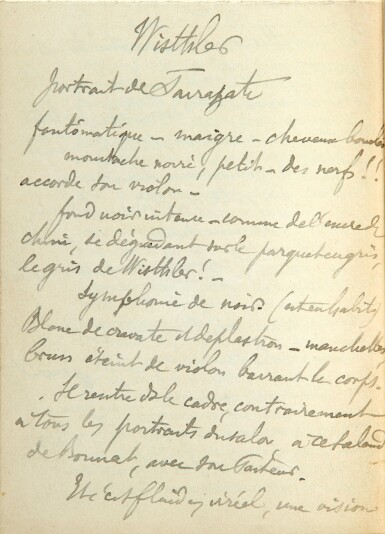 Wisthsler
portrait de Sarrazate
fantômatique – maigre – cheveux bouclés
moustache noire, petit – des nerfs !!
accorde son violon –
fond noir intense – comme de l'encre de
chine, se dégradant sur le parquet en gris,
le gris de Wisthsler ! –
Symphonie de noir. (est en habit)
Blanc de cravate et de plastron – manchettes,
brun éteint de violon barrant le corps.
Il rentre ds le cadre, contrairement
à tous les portraits du salon, à cet
de Bonnat, avec son Pasteur.
Et c'est fluide, irréel, une vision